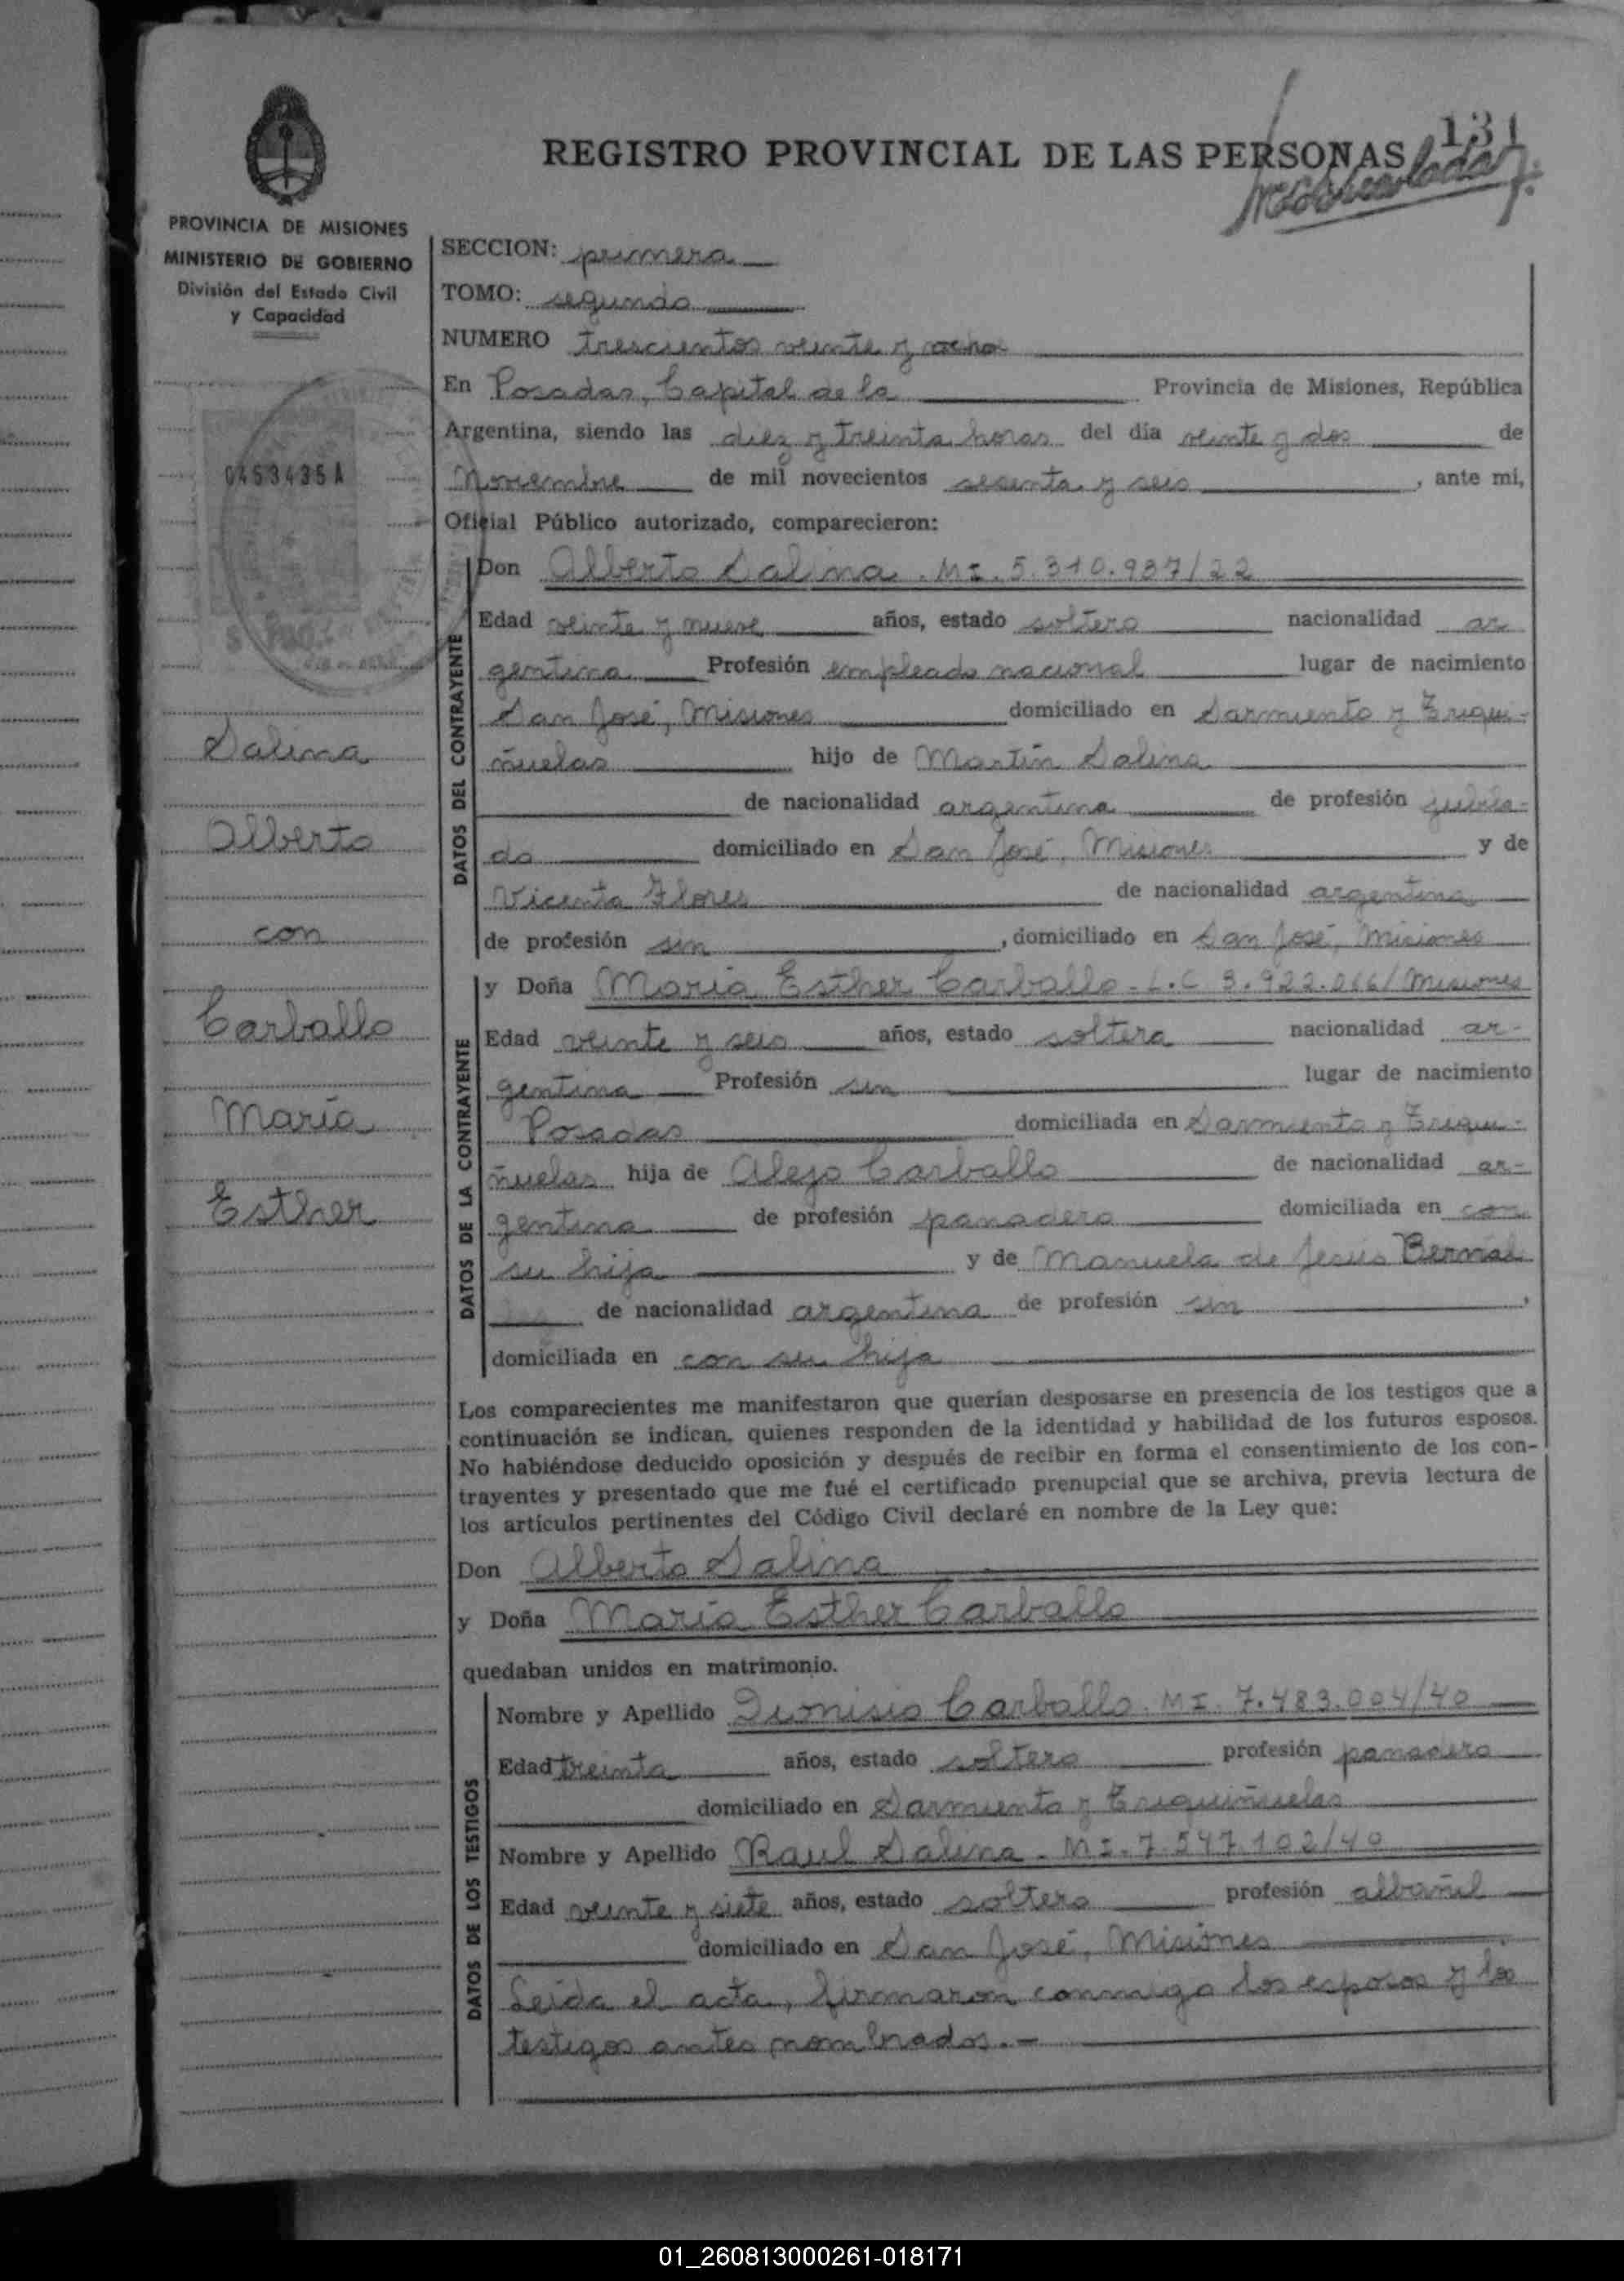 131
REGISTRO PROVINCIAL DE LAS PERSONAS
PROVINCIA DE MISIONES
MINISTERIO DE GOBIERNO
División del Estado Civil
y Capacidad
SECCION: primera
TOMO: segundo
NUMERO trescientos veinte y ocho
En Posadas, Capital de la Provincia de Misiones, República
Argentina, siendo las diez y treinta horas del día veinte y dos de
Noviembre de mil novecientos sesenta y seis, ante mi,
0453435A
Oficial Público autorizado, comparecieron:
DATOS DEL CONTRAYENTE
Don Alberto Salina. MI. 5.310.937/22
Edad veinte y nueve años, estado soltero nacionalidad ar
gentina Profesión empleado nacional lugar de nacimiento
San José, Misiones domiciliado en Sarmiento y Eriqui-
ñuelas hijo de Martín Salina
de nacionalidad argentina de profesión jubila-
do domiciliado en San José, Misiones y de
Vicenta Flores de nacionalidad argentina
de profesión sin, domiciliado en San José, Misiones
Salina
Alberto
con
Carballo
María
Esther
DATOS DE LA CONTRAYENTE
y Doña María Esther Carballo - L.C 3.922.066/Misiones
Edad veinte y seis años, estado soltera nacionalidad ar-
gentina Profesión sin lugar de nacimiento
Posadas domiciliada en Sarmiento y Eriqui-
ñuelas hija de Alejo Carballo de nacionalidad ar-
gentina de profesión panadero domiciliada en con
su hija y de Manuela de Jesús Bernal
de nacionalidad argentina de profesión sin,
domiciliada en con su hija
Los comparecientes me manifestaron que querían desposarse en presencia de los testigos que a
continuación se indican, quienes responden de la identidad y habilidad de los futuros esposos.
No habiéndose deducido oposición y después de recibir en forma el consentimiento de los con-
trayentes y presentado que me fué el certificado prenupcial que se archiva, previa lectura de
los artículos pertinentes del Código Civil declaré en nombre de la Ley que:
Don Alberto Salina
y Doña María Esther Carballo
quedaban unidos en matrimonio.
DATOS DE LOS TESTIGOS
Nombre y Apellido Dionisio Carballo. MI. 7.483.004/40
Edad treinta años, estado soltero profesión panadero
domiciliado en Sarmiento y Eriquiñuelas
Nombre y Apellido Raul Salina - MI. 7.547.102/40
Edad veinte y siete años, estado soltero profesión albañil
domiciliado en San José, Misiones
Leída el acta, firmaron conmigo los esposos y los
testigos antes nombrados.-
01_260813000261-018171